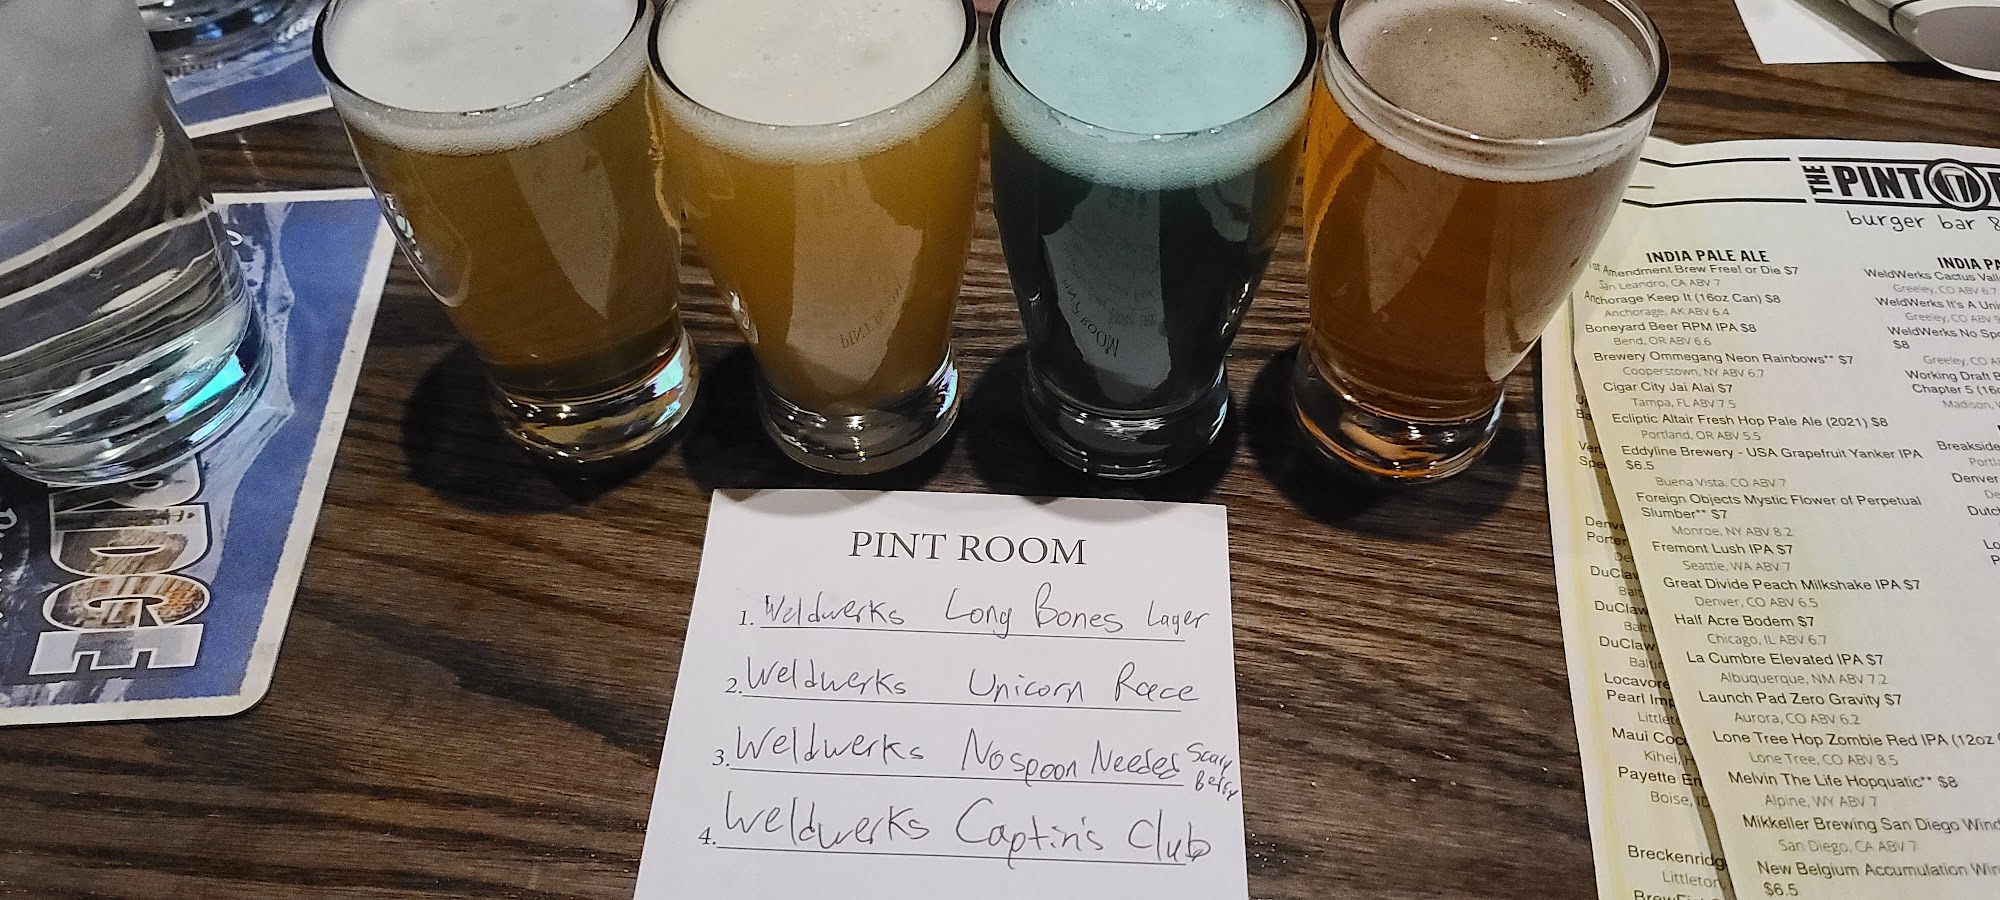 PINT ROOM
1. Weldwerks Long Bones Lager
2. Weldwerks Unicorn Race
3. Weldwerks No spoon Needed Scary Berry
4. Weldwerks Captin's Club
THE PINT
burger bar &
INDIA PALE ALE
Amendment Brew Free! or Die $7
San Leandro, CA ABV 7
Anchorage Keep It (16oz Can) $8
Anchorage, AK ABV 6.4
Boneyard Beer RPM IPA $8
Bend, OR ABV 6.6
Brewery Ommegang Neon Rainbows** $7
Cooperstown, NY ABV 6.7
Cigar City Jai Alai $7
Tampa, FL ABV 7.5
Ecliptic Altair Fresh Hop Pale Ale (2021) $8
Portland, OR ABV 5.5
Eddyline Brewery - USA Grapefruit Yanker IPA
$6.5
Buena Vista, CO ABV 7
Foreign Objects Mystic Flower of Perpetual
Slumber** $7
Monroe, NY ABV 8.2
Fremont Lush IPA $7
Seattle, WA ABV 7
Great Divide Peach Milkshake IPA $7
Denver, CO ABV 6.5
Half Acre Bodem $7
Chicago, IL ABV 6.7
La Cumbre Elevated IPA $7
Albuquerque, NM ABV 7.2
Launch Pad Zero Gravity $7
Aurora, CO ABV 6.2
Lone Tree Hop Zombie Red IPA (12oz
Lone Tree, CO ABV 8.5
Melvin The Life Hopquatic** $8
Alpine, WY ABV 7
Mikkeller Brewing San Diego
San Diego, CA ABV 7
New Belgium Accumulation
$6.5
INDIA
WeldWerks Cactus
Greeley, CO ABV 6.7
WeldWerks It's A
Greeley, CO ABV
WeldWerks No
$8
Greeley, CO
Working Draft
Chapter 5
Breakside
Denver
DuClaw
DuClaw
Locavore
Pearl
Maui
Kihei,
Payette
Boise,
Littleton,
PINT ROOM